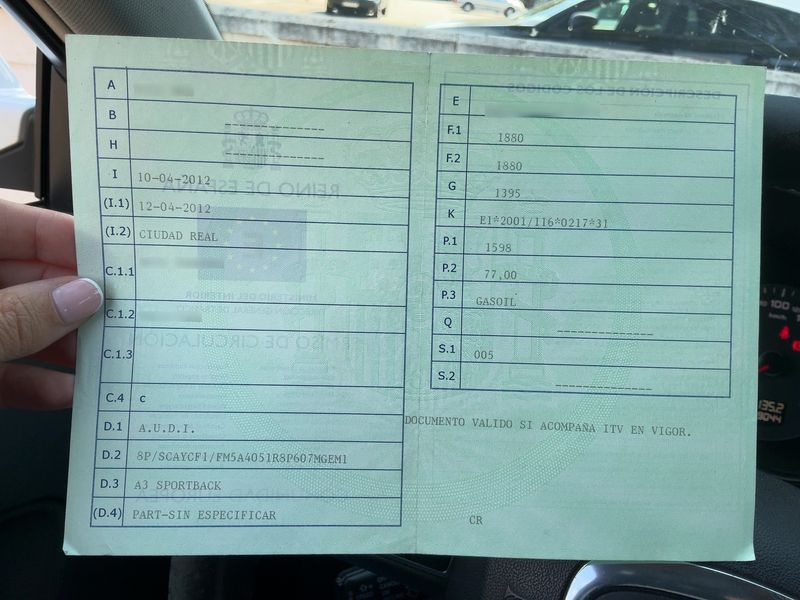 A
B ------------
H ------------
I 10-04-2012
(I.1) 12-04-2012
(I.2) CIUDAD REAL
C.1.1
C.1.2
C.1.3
C.4 c
D.1 A.U.D.I.
D.2 8P/SCAYCF1/FM5A4051R8P607MGEM1
D.3 A3 SPORTBACK
(D.4) PART-SIN ESPECIFICAR
E
F.1 1880
F.2 1880
G 1395
K E1*2001/116*0217*31
P.1 1598
P.2 77,00
P.3 GASOIL
Q ------------
S.1 005
S.2 ------------
DOCUMENTO VALIDO SI ACOMPAÑA ITV EN VIGOR.
CR
REINO DE ESPAÑA
MINISTERIO DEL INTERIOR
DESCRIPCIÓN DE LOS CÓDIGOS
100
km/h
135.2